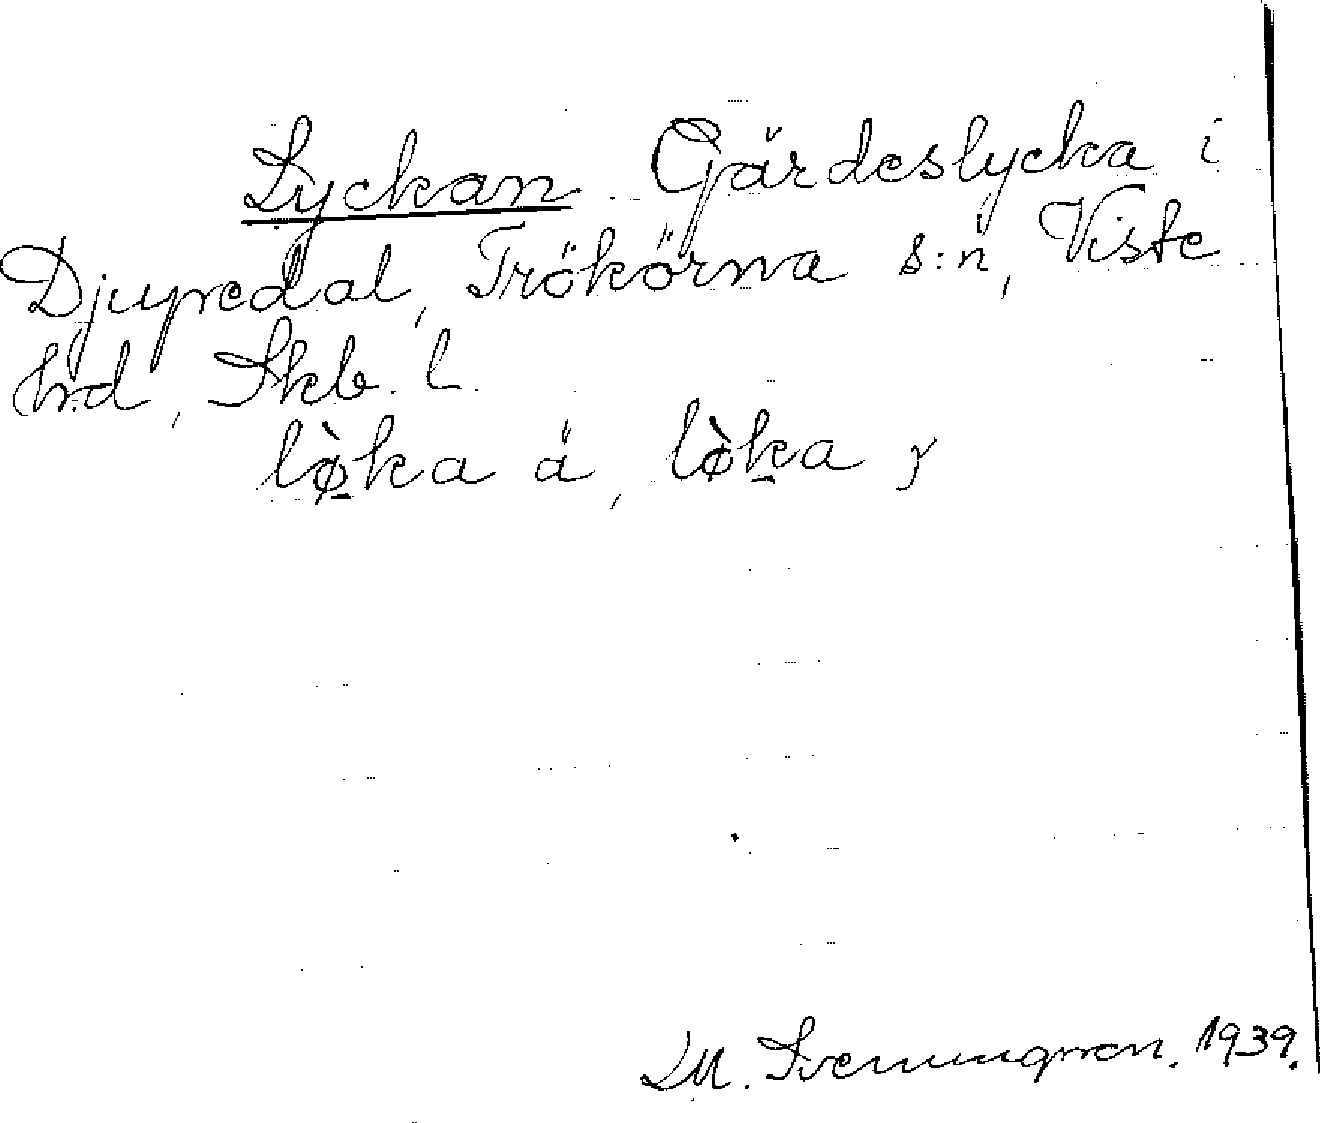 Lyckan Gärdeslycka i
Djupedal, Trökörna s:n, Viste
hrd, Skb. l.
lø̀ka ä, lø̀ka r
M. Svenungsson. 1939.